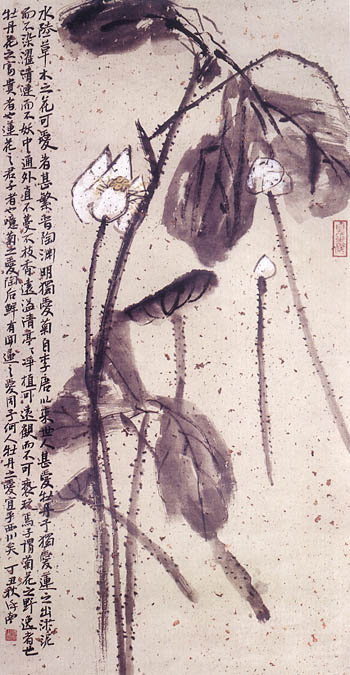 水陸草木之花可愛者甚繁晋陶渊明獨愛菊自李唐以来世人甚愛牡丹予獨愛蓮之出淤泥
而不染濯清漣而不妖中通外直不蔓不枝香遠溢清亭〻淨植可遠觀而不可褻玩焉予謂菊花之野逸者也
牡丹花之富貴者也蓮花之君子者也噫菊之愛陶后鮮有聞蓮之愛同予何人牡丹之愛宜乎眾矣 丁丑秋